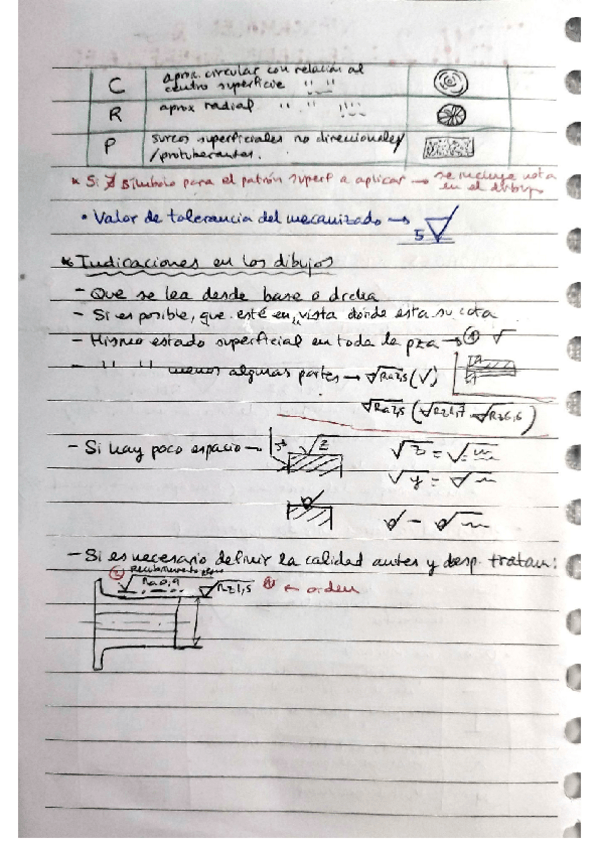 C aprox. circular con relación al
centro superficie " "
R aprox radial " " " "
P surcos superficiales no direccionales
/protuberantes.
* Si ∄ símbolo para el patrón superf a aplicar → se incluye nota
en el dibujo
• Valor de tolerancia del mecanizado →
5
* Indicaciones en los dibujos
- Que se lea desde base o drcha
- Si es posible, que esté en vista donde esta su cota
- Mismo estado superficial en toda la pza → ① √
- " " " menos algunas partes → √Ra2,5 (√)
√Ra2,5 (√Rz1,7 √Rz6,6)
- Si hay poco espacio → √z
√z = √
√y = √
- Si es necesario definir la calidad antes y desp. tratam:
② recubrimiento
Ra0,9 √Rz1,5 ① ← orden